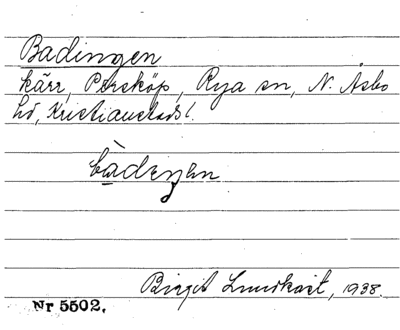 Badingen
kärr, Persköp, Rya sn, N. Åsbo
hd, Kristianstads l.
bàdeŋən
Birgit Lundkvist, 1938.
Nr 5502.